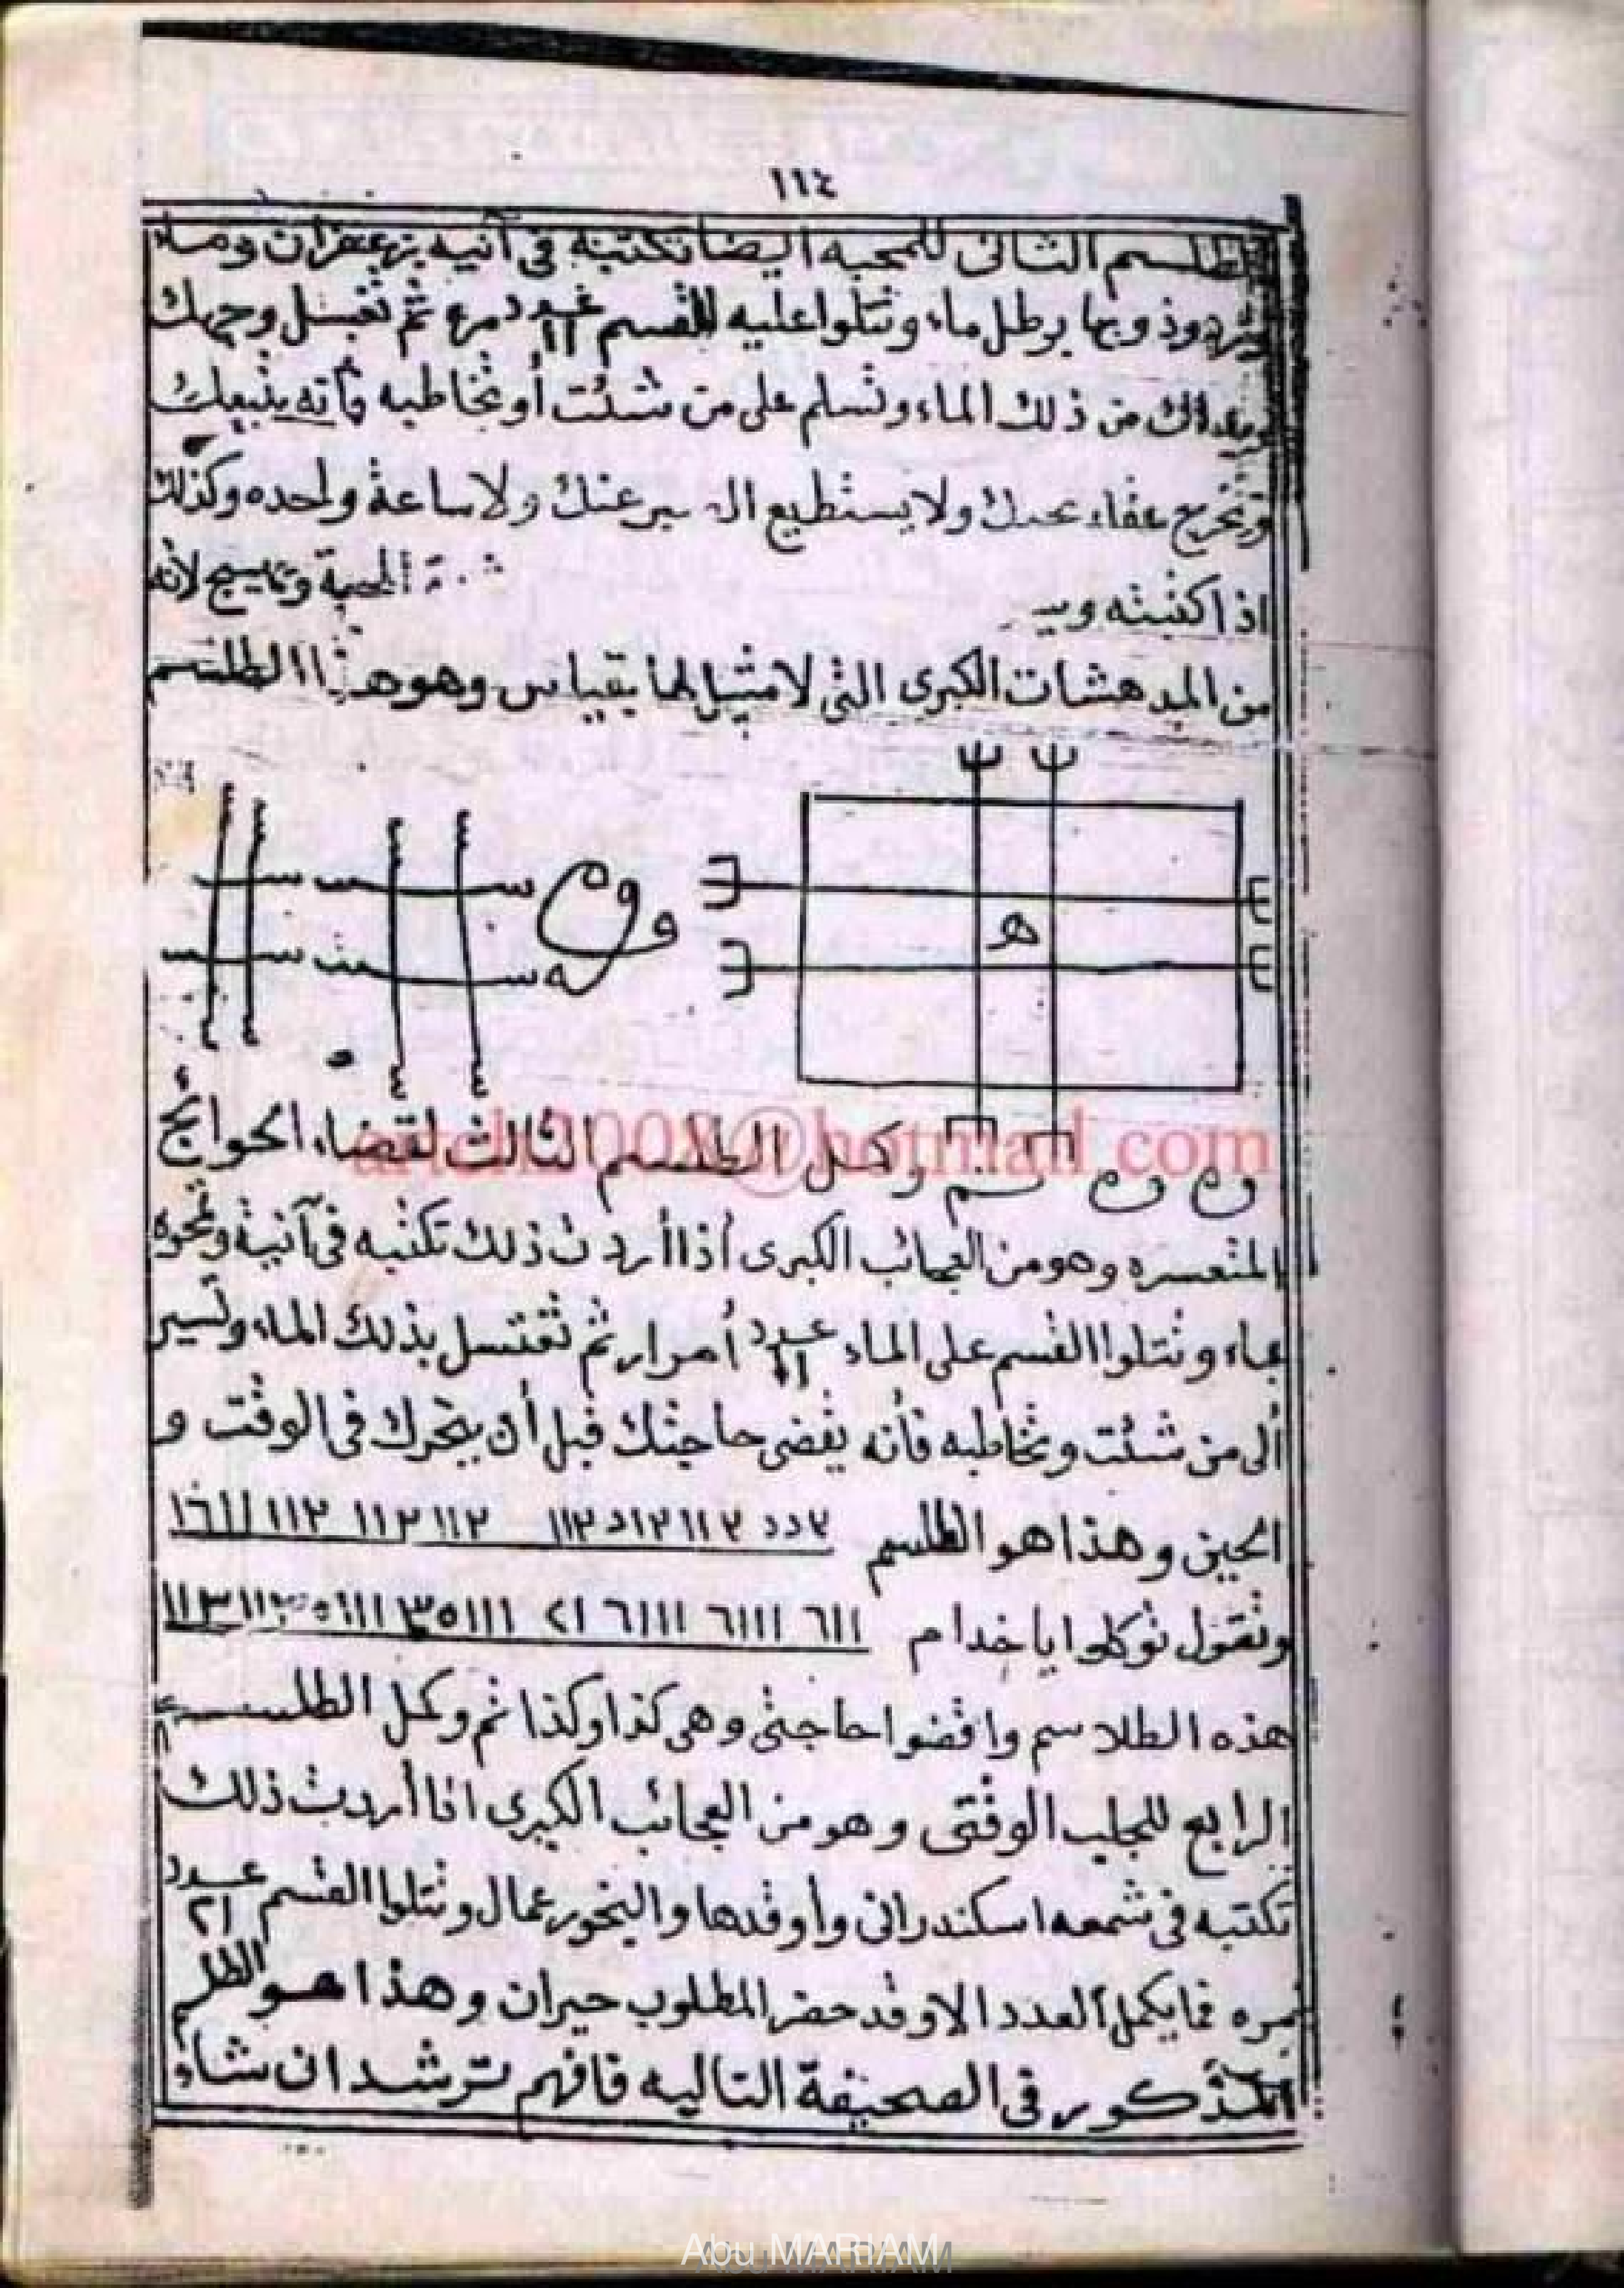 ١١٤
الطلسم الثانى للمحبه ايضا تكتبه فى آنيه بزعفران وماء
وذوبها برطل ماء، وتتلوا عليه القسم عدد ١١ مره ثم تغسل وجهك
من ذلك الماء، وتسلم على من شئت أو تخاطبه فأنه يتبعك
ولا يستطيع عنك ولا ساعة واحده وكذلك
اذا كتبته المحبة لأنه
من المدهشات الكبرى التى لا مثيل لها بقياس وهو هذا الطلسم
ه
وكل الطلسم الثالث لقضاء الحوائج
المتعسره وهو من العجائب الكبرى أذا أردت ذلك تكتبه فى آنية وتمحوه
بماء وتتلوا القسم على الماء عدد ١١ أمرار ثم تغتسل بذلك الماء، وتسير
ألى من شئت وتخاطبه فأنه يقضى حاجتك قبل أن يتحرك فى الوقت و
الحين وهذا هو الطلسم
وتقول توكلوا ياخدام ٦١١ ٦١١١ ٦١١١ ٢١
هذه الطلاسم واقضوا حاجتى وهى كذا وكذا ثم وكل الطلسم
الرابع للجلب الوقتى وهو من العجائب الكبرى اذا أردت ذلك
تكتبه فى شمعه اسكندرانى وأوقدها والبخور عمال وتتلوا القسم عدد ٢١
مره فما يكمل العدد الا وقد حضر المطلوب حيران وهذا هو الطلسم
المذكور فى الصحيفة التاليه فافهم ترشد ان شاء
arteh2008@hotmail.com
Abu MARIAM